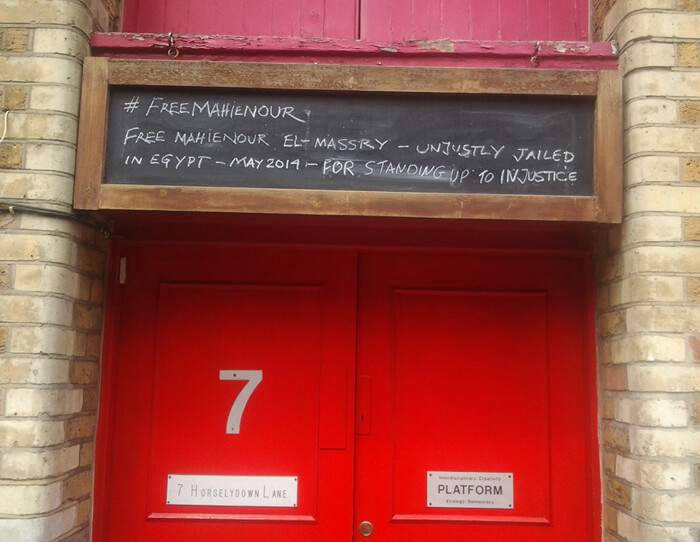 # FREEMAHIENOUR
FREE MAHIENOUR EL-MASSRY – UNJUSTLY JAILED
IN EGYPT – MAY 2014 – FOR STANDING UP TO INJUSTICE
7
7 HORSELYDOWN LANE
Interdisciplinary Creativity
PLATFORM
Ecology Democracy